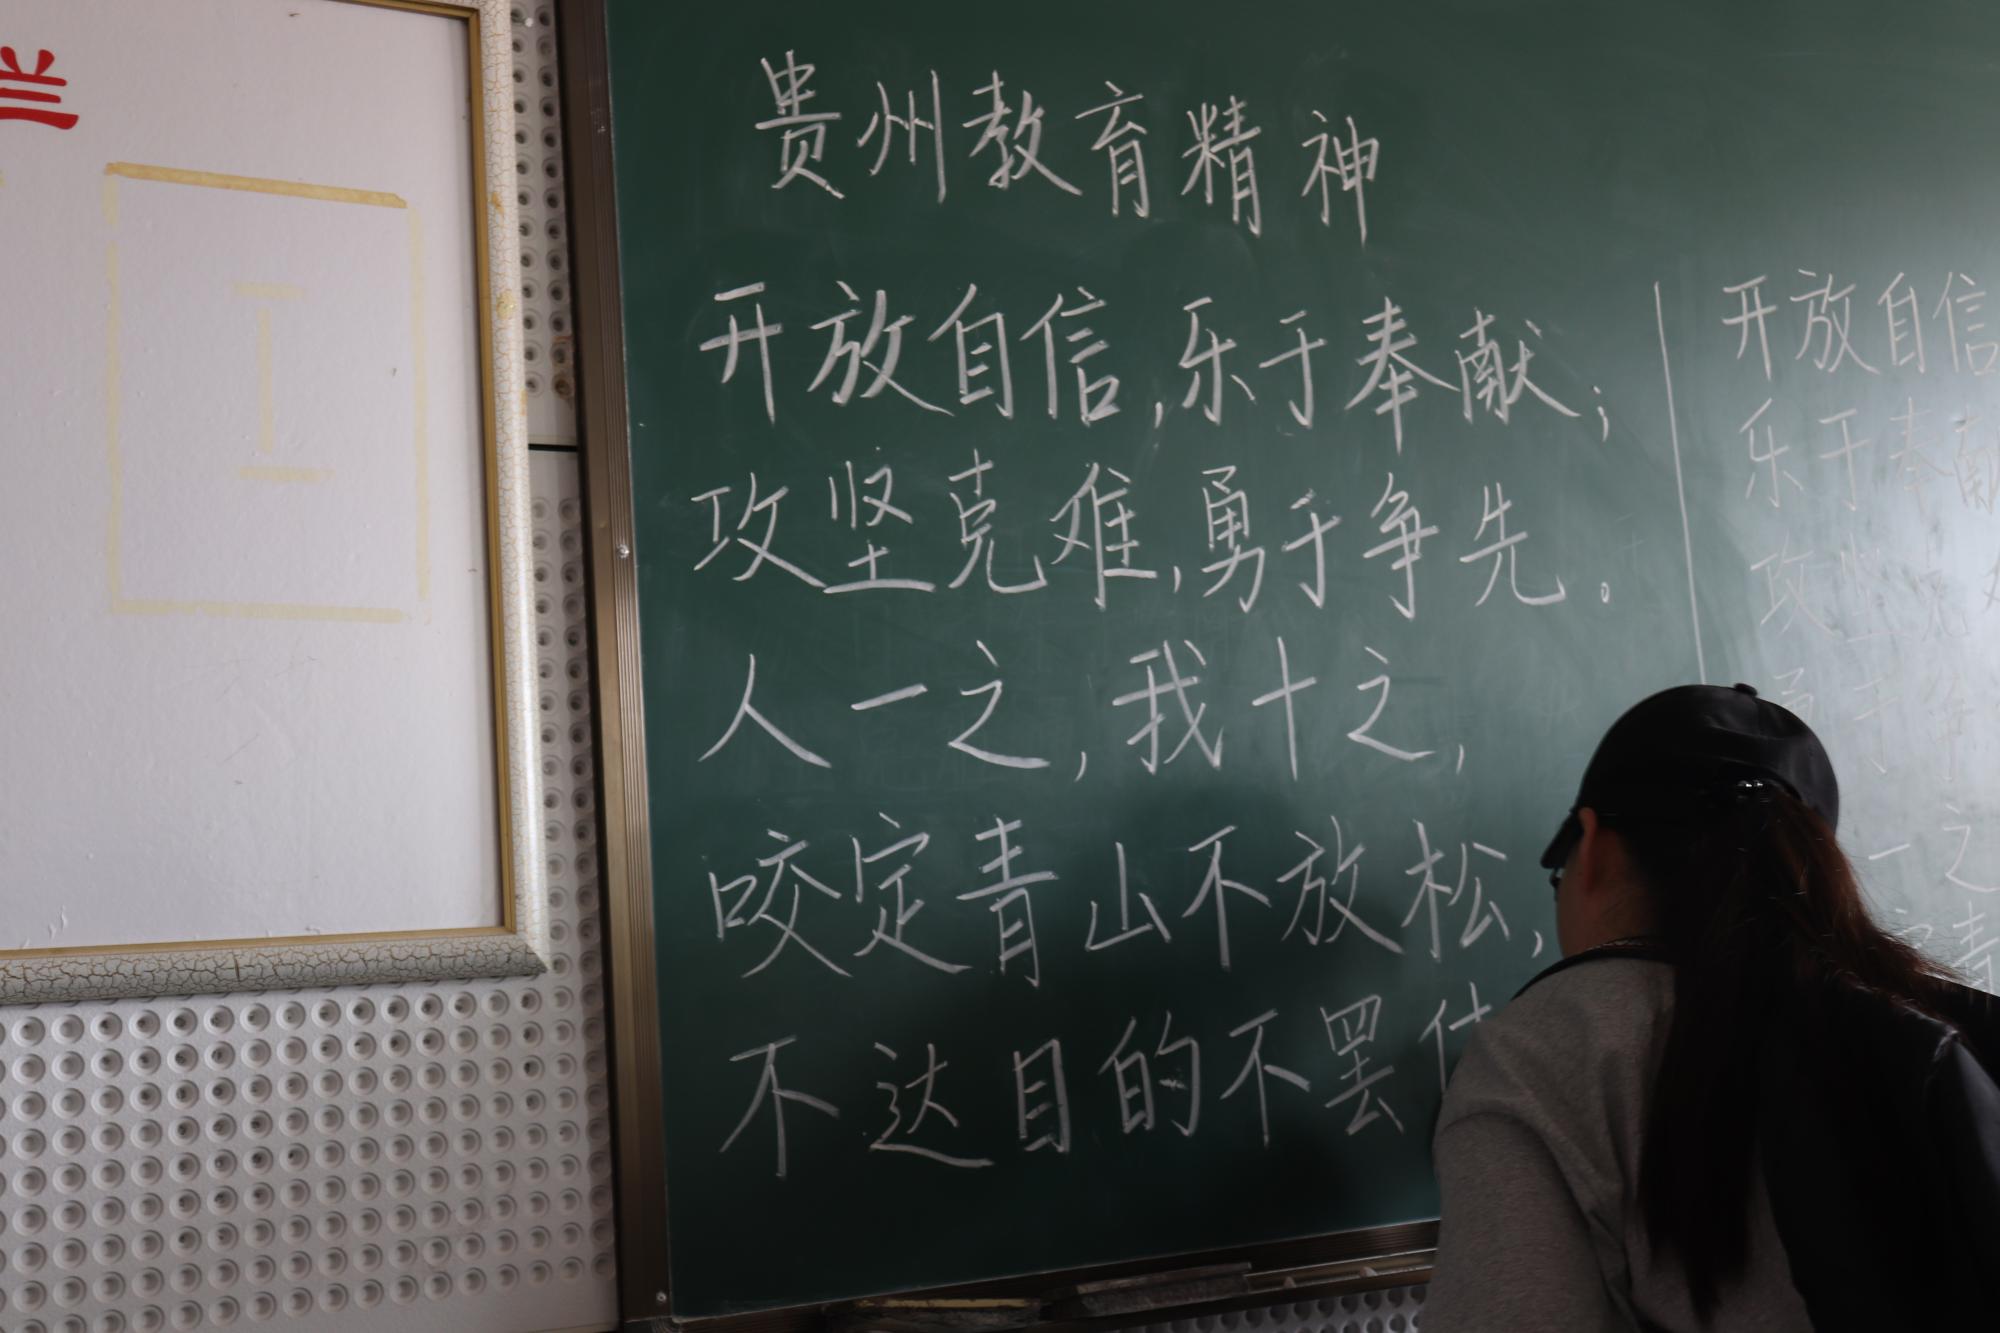 栏
贵州教育精神
开放自信,乐于奉献;
攻坚克难,勇于争先。
人一之,我十之,
咬定青山不放松,
不达目的不罢
开放自信
乐于奉献
攻坚克
于争
一之
青